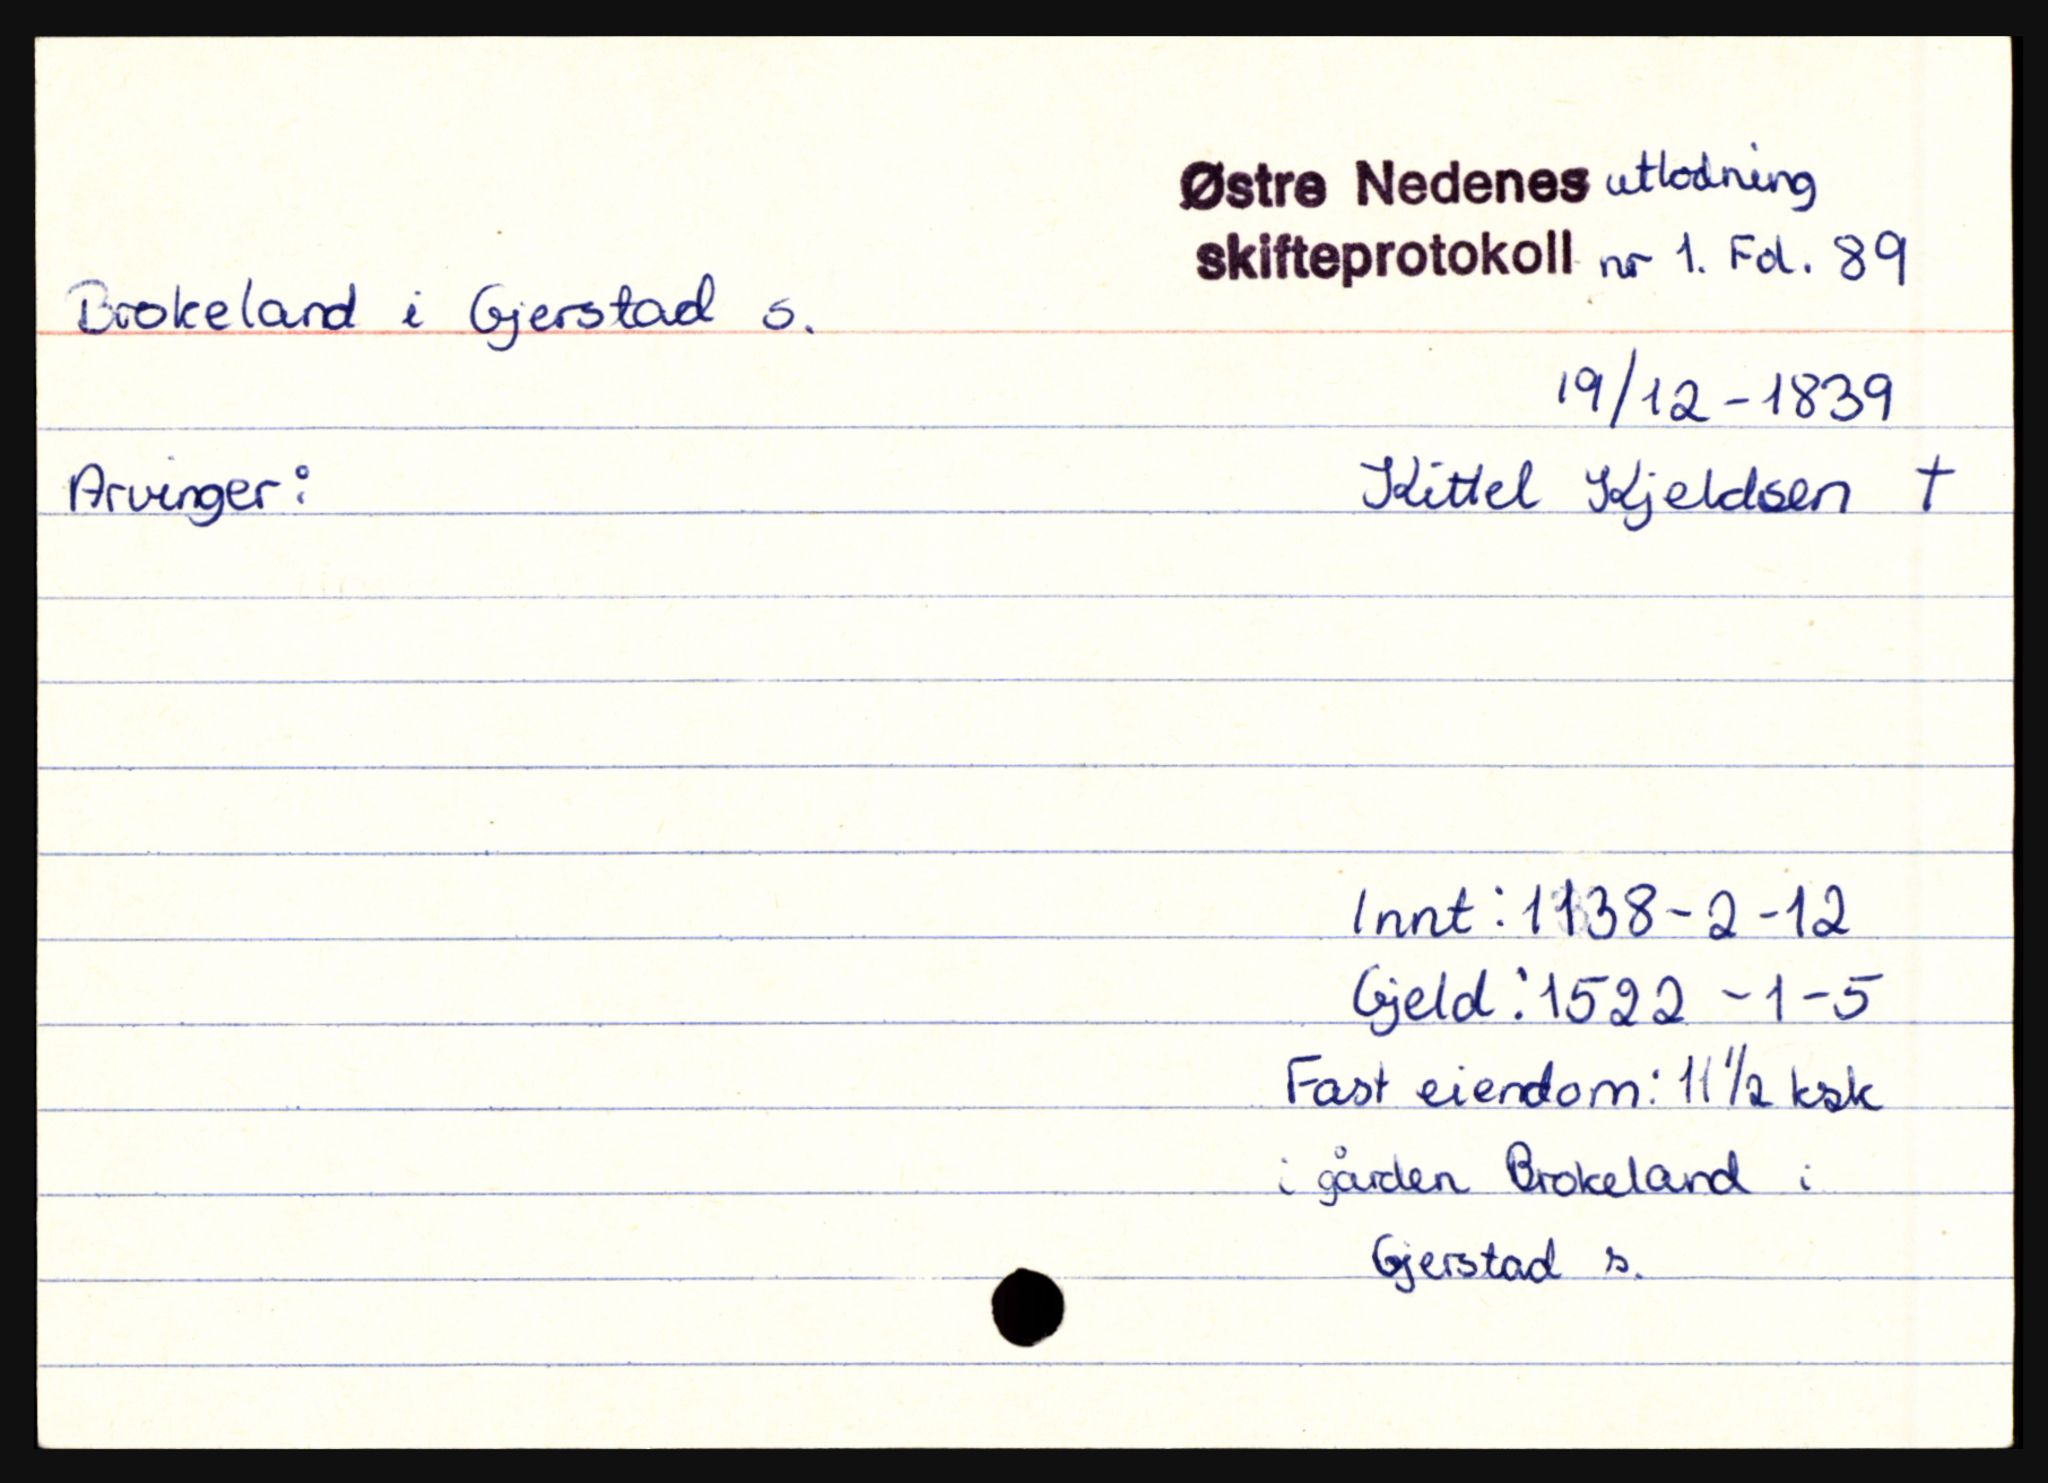 Østre Nedenes utlodning
skifteprotokoll nr 1. Fol. 89
Brokeland i Gjerstad s.
19/12-1839
Arvinger: Kittel Kjeldsen †
Innt: 1138-2-12
Gjeld: 1522-1-5
Fast eiendom: 11 1/2 ksk
i gården Brokeland i
Gjerstad s.